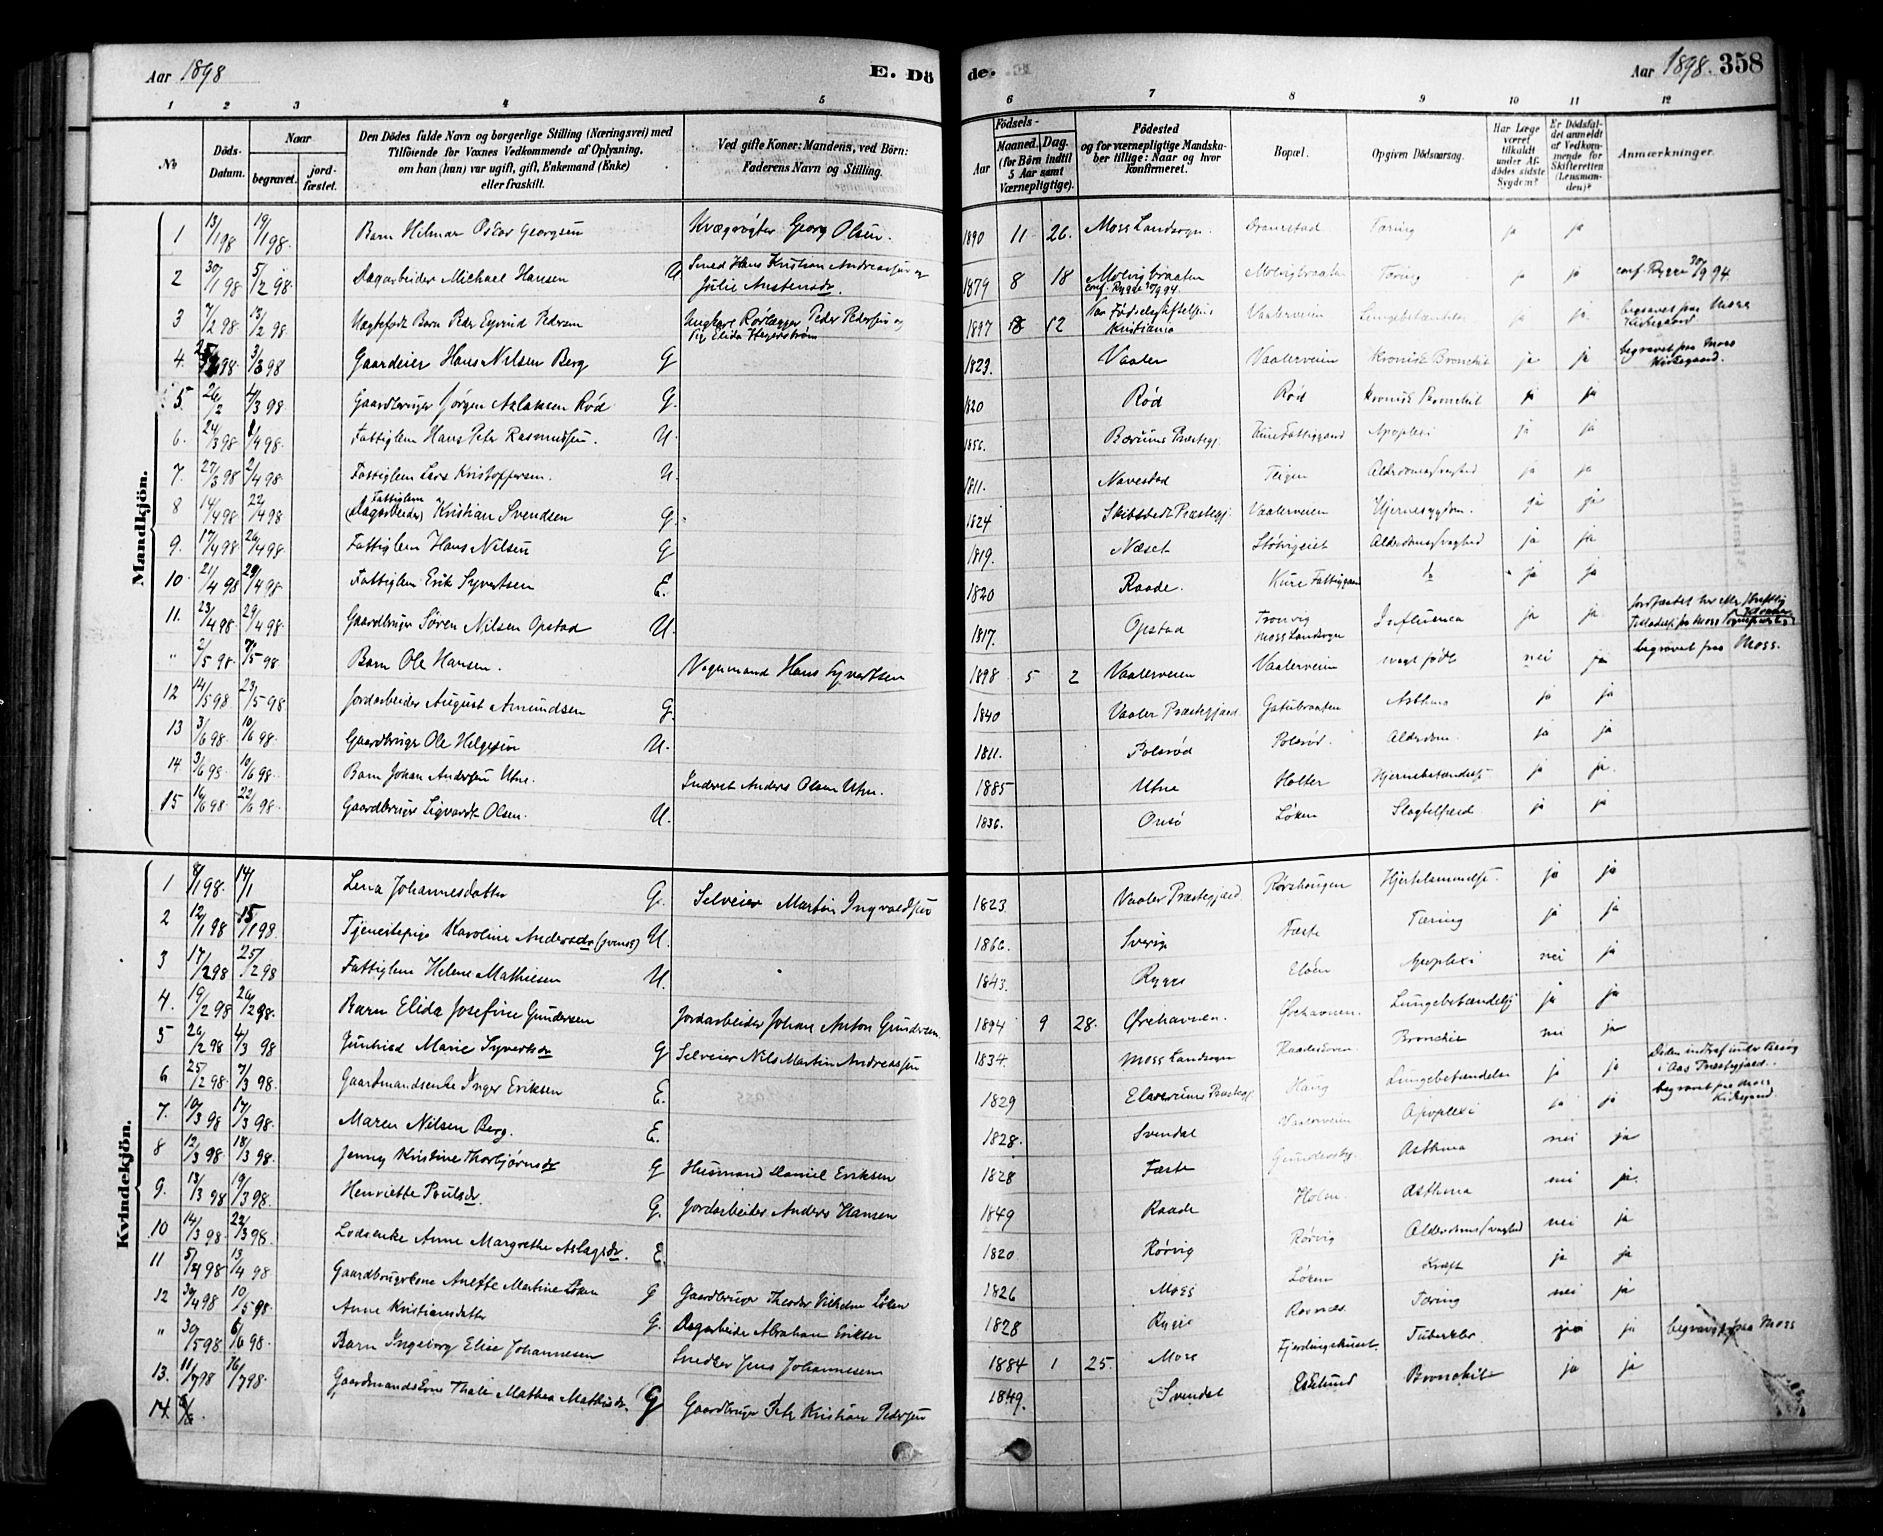 Aar 1898
E. Dö
de.
Aar 1898. 358
1 2 3 4 5 6 7 8 9 10 11 12
No
Döds-Datum.
Naar
begravet.
jord-fæstet.
Den Dödes fulde Navn og borgerlige Stilling (Næringsvei) med Tilföiende for Voxnes Vedkommende af Oplysning, om han (hun) var ugift, gift, Enkemand (Enke) eller fraskilt.
Ved gifte Koner: Mandens, ved Börn: Faderens Navn og Stilling.
Födsels-
Aar
Maaned.
Dag.
(for Börn indtil 5 Aar samt Værnepligtige).
Födested og for værnepligtige Mandskaber tillige: Naar og hvor konfirmeret.
Bopæl.
Opgiven Dödsaarsag.
Har Læge været tilkaldt under Afdödes sidste Sygdom?
Er Dödsfaldet anmeldt af Vedkommende for Skifteretten (Lensmanden)?
Anmærkninger.
Mandkjön.
1 13/1 98 19/1 98. Barn Helmar Oskar Georgsen Kvægrøgter Georg Olsen. 1890 11 26. Moss Landsogn. Dramstad Tæring ja ja
2 30/1 98 5/2 98. Dagarbeider Michael Hansen U Smed Hans Kristian Andreassen og Julie Austensdr. 1879 8 18 Molvigbraaten conf. Rygge 30/9 94. Molvigbraaten Tæring ja ja conf. Rygge 30/9 94
3 7/2 98 13/2 98 Uægtefødt Barn Peder Eivind Pedersen Ungkarl Rørlægger Peder Pedersen og Pig Elida Hagerstrøm 1897 12 Paa Fødselsstiftelsen Kristiania Vaalerveien Lungebetændelse ja ja begravet paa Mosse Kirkegaard
4. 98 3/3 98 Gaardeier Hans Nilsen Berg G 1823. Vaaler Vaalerveien Kronisk Bronchit ja ja begravet paa Moss Kirkegaard.
5. 26/2 4/3 98 Gaardbruger Jörgen Aslaksen Rød G. 1820 Rød Rød Kronisk Bronchit ja ja
6. 24/3 98 1/4 98. Fattiglem Hans Peter Rasmussen. U. 1856. Bærums Præstegj. Kure Fattiggaard Apoplexi ja ja
7. 27/3 98 2/4 98 Fattiglem Lars Kristoffersen. U. 1811. Navestad Teigen Alderdomssvaghed ja ja
8 14/4 98 22/4 98 Fattiglem (Dagarbeider) Kristian Svendsen G. 1824 Skibtvedt Præstegj. Vaalerveien Hjernesygdom. ja ja
9. 17/4 98 26/4 98. Fattiglem Hans Nilsen G 1819. Næset Støvigeiet Alderdomssvaghed ja ja
10. 21/4 98 29/4 98. Fattiglem Erik Syvertsen E. 1820 Raade. Kure Fattiggaard do ja ja
11. 23/4 98 29/4 98. Gaardbruger Søren Nilsen Opstad U. 1817. Opstad Tronvig Moss Landsogn Influenca ja ja. jordfæstet her efter skriftlig Tilladelse fra Moss Sognepræst
" 2/5 98. 7/5 98. Barn Ole Hansen. Vognmand Hans Syvertsen 1898 5 2 Vaalerveien Vaalerveien svagt født nei ja begravet paa Moss.
12 14/5 98 23/5 98. Jordarbeider August Amundsen G. 1840 Vaaler Præstegjæld Gatubraaten Asthma ja ja
13 3/6 98. 10/6 98. Gaardbruger Ole Helgesen U. 1811. Polsrød Polsrød. Alderdom. ja ja
14 3/6 98. 10/6 98. Barn Johan Andersen Utne. Inderst Anders Olsen Utne. 1885 Utne Holter Hjernebetændelse ja ja.
15 16/6 98 22/6 98. Gaardbruger Sigvardt Olsen. U. 1836. Onsø Løken Slagtilfæld ja ja
Kvindekjön.
1 8/1 98. 14/1 Lena Johannesdatter G. Selveier Martin Ingvaldsen 1823 Vaaler Præstegjæld Rørshougen Hjertelammelse. ja ja
2 12/1 98 15/1 98. Tjenestepige Karoline Andersdr (svensk) U. 1866. Sverig Fæste Tæring ja ja
3 17/2 98 25/2 98 Fattiglem Helene Mathisen U. 1843. Rygge Eløen Apoplexi nei ja
4. 19/2 98 26/2 98. Barn Elida Josefine Gundersen Jordarbeider Johan Anton Gundersen 1894 9 28. Ørehavnen. Ørehavnen. Lungebetændelse ja ja
5 26/2 98 4/3 98 Gunhild Marie Syvertsdr G Selveier Nils Martin Andreassen 1834 Moss Landsogn Bronchit nei ja
6 25/2 98. 7/3 98. Gaardmandsenke Inger Eriksen E. 1829 Elverums Præstegj. Haug Lungebetændelse ja ja Døden indtraf under Besøg i Aas Præstegjæld.
7. 10/3 98 17/3 98. Maren Nilsen Berg. E. 1828. Svendal Vaalerveien Apoplexi ja ja begravet paa Moss Kirkegaard
8 12/3 98 18/3 98. Jenny Kristine Thorbjørnsdr G Husmand Daniel Eriksen 1828 Fæste Gundersby. Asthma nei ja
9. 13/3 98 19/3 98. Henriette Poulsdr. G. Jordarbeider Anders Hansen 1849 Raade Holm. Asthma nei ja.
10 14/3 98. 22/3 98. Lodsenke Anne Margrethe Aslagsdr. E. 1820 Rørvig Rørvig Alderdomssvaghed nei ja
11 5/4 98 13/4 98 Gaardbrugerkone Anette Martine Løken G Gaardbruger Theodor Vilhelm Løken 1826 Moss Løken Kræft ja ja
12 30/4 98 10/5 98. Anne Kristiansdatter G. Dagarbeider Abraham Eriksen 1828 Rygge Ravnæs. Tæring nei ja
" 30/5 98 6/6 98. Barn Ingeborg Elise Johannesen Snedker Jens Johannesen 1884 1 25. Moss Fjerdingskuset. Tuberkler. ja begravet paa Moss
13. 11/7 98 16/7 98. Gaardmandskone Thale Mathea Mathisdr. G Gaardbruger Peter Kristian Pedersen 1849. Svendal Eskelund Bronchit ja ja
14.